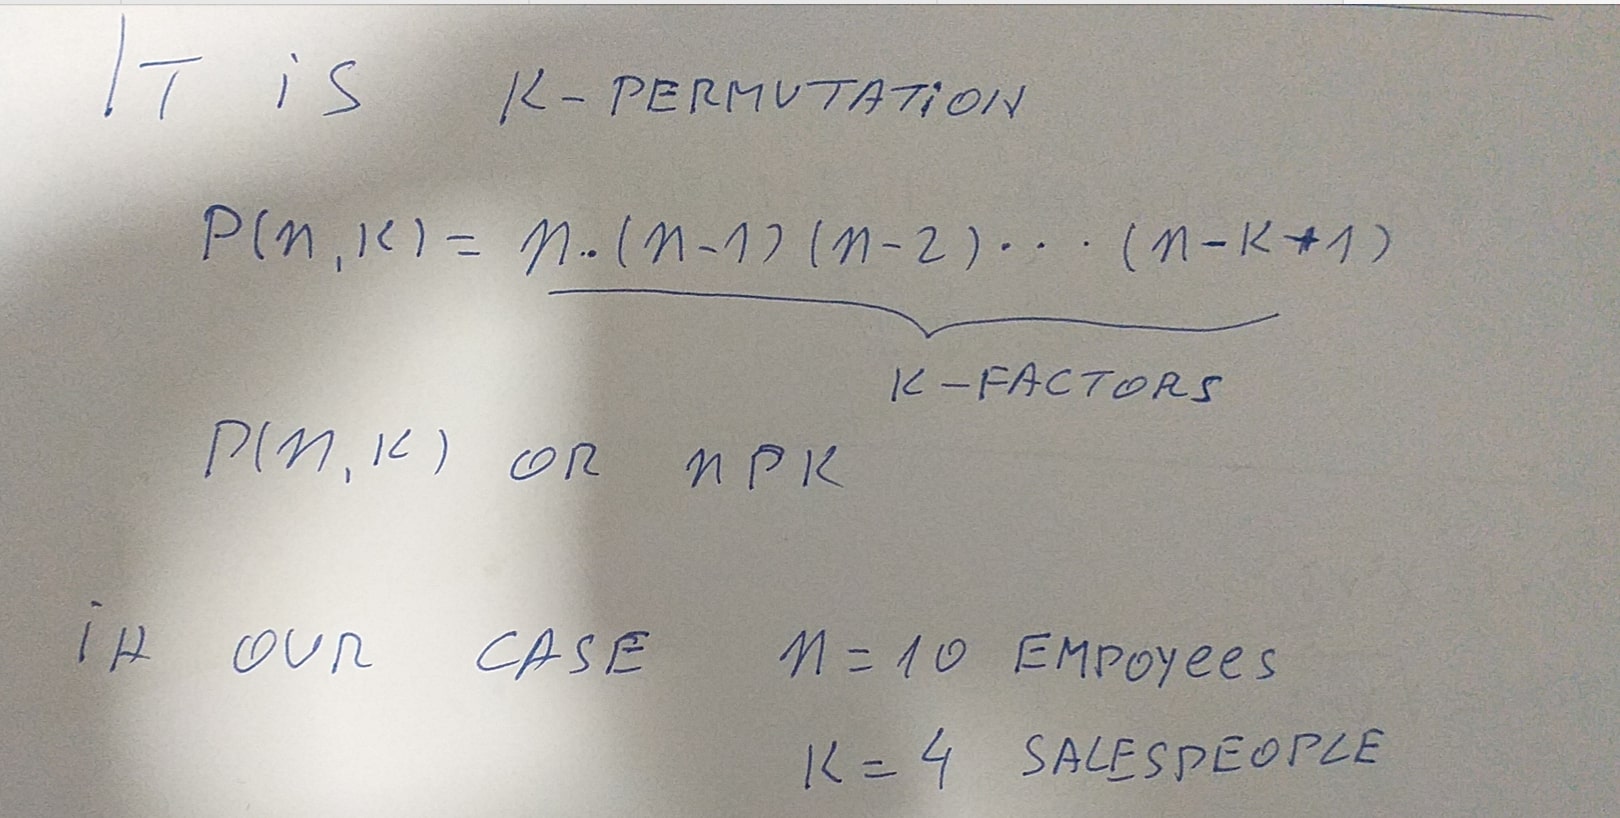 IT iS K-PERMUTATiON
P(n,K) = n·(n-1)(n-2)···(n-K+1)
K-FACTORS
P(n,K) OR nPK
iN OUR CASE n=10 EMPOYees
K=4 SALESPEOPLE